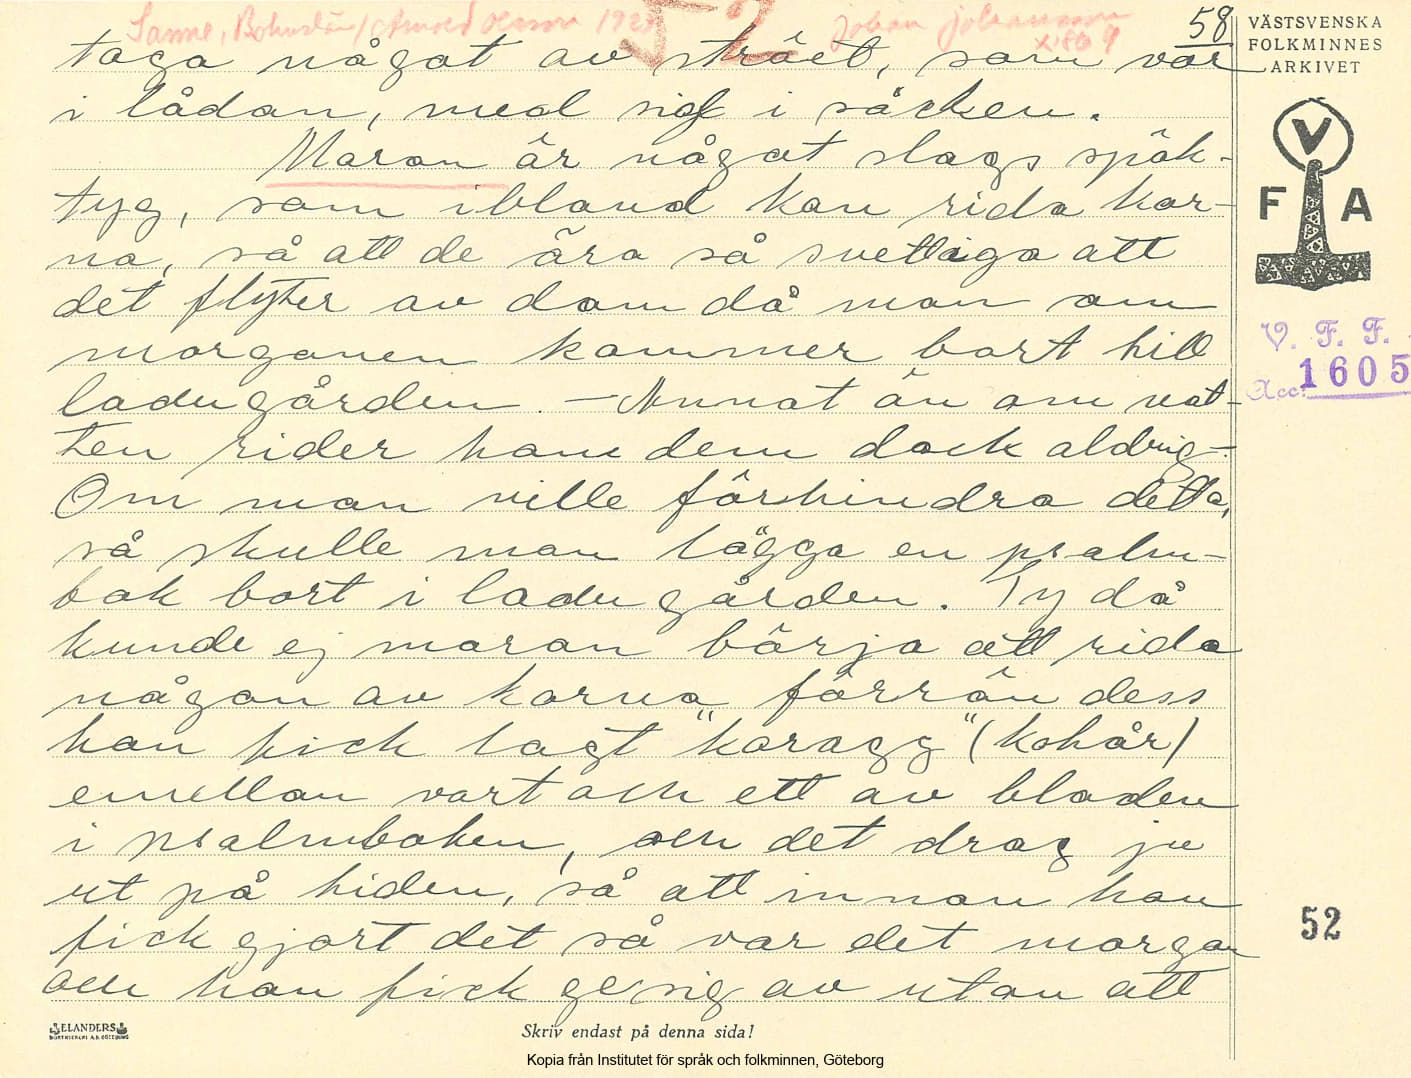 Sanne, Bohuslän / Arnold Olsson 192
52
Johan Johansson
58
taga något av strået, som var
i lådan, med sig i säcken.
Maran är något slags spök-
tyg, som ibland kan rida kor-
na, så att de äro så svettiga att
det flyter av dom då man om
morganen kommer bort till
ladugården. – Annat än om nat-
ten rider han dem dock aldrig.
Om man ville förhindra detta,
så skulle man lägga en psalm-
bok bort i ladugården. Ty då
kunde ej maran börja att rida
någon av korna förrän dess
han fick lagt "koragg" (kohår)
emellan vart och ett av bladen
i psalmboken, och det drog ju
ut på tiden, så att innan han
fick gjort det så var det morgon
och han fick ge sig av utan att
VÄSTSVENSKA
FOLKMINNES
ARKIVET
V
F A
V. F. F.
Acc. 1605
52
ELANDERS
BOKTRYCKERI A.B. GÖTEBORG
Skriv endast på denna sida!
Kopia från Institutet för språk och folkminnen, Göteborg